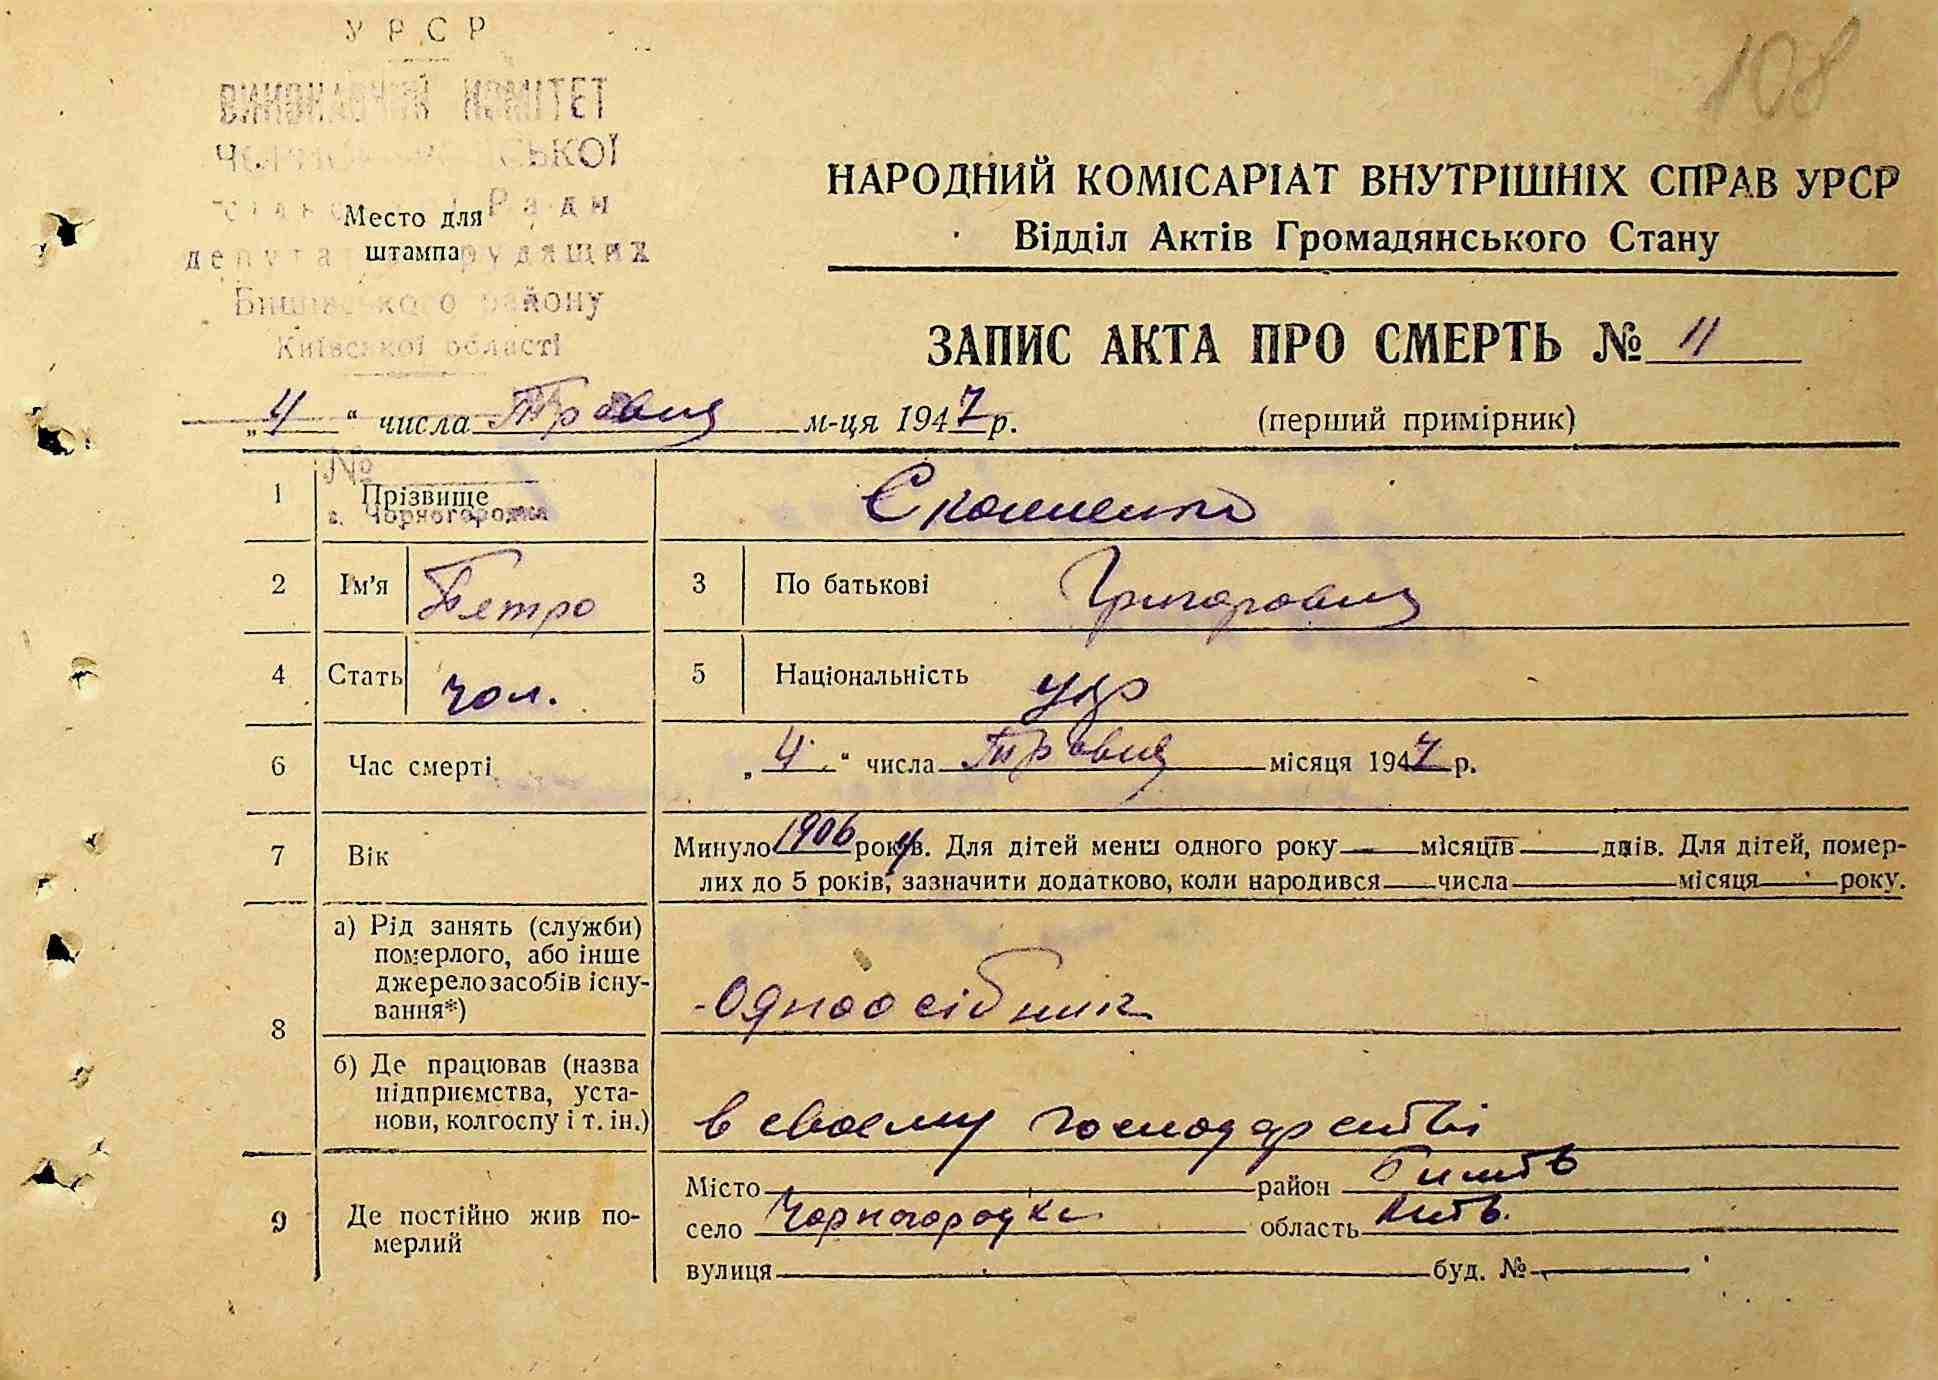 108
УРСР
ВИКОНАВЧИЙ КОМІТЕТ
СЬКОЇ
Ради
депута рудящих
Бишівського району
Київської області
Место для
штампа
НАРОДНИЙ КОМІСАРІАТ ВНУТРІШНІХ СПРАВ УРСР
Відділ Актів Громадянського Стану
ЗАПИС АКТА ПРО СМЕРТЬ № 11
„4“ числа Травня м-ця 1947 р.
(перший примірник)
№
с. Чорногородка
1 Прізвище
2 Ім'я Петро 3 По батькові Григорович
4 Стать чол. 5 Національність укр
6 Час смерті „4“ числа Травня місяця 1947 р.
7 Вік Минуло 1906 років. Для дітей менш одного року — місяців — днів. Для дітей, помер-
лих до 5 років, зазначити додатково, коли народився — числа — місяця — року.
8 а) Рід занять (служби)
померлого, або інше
джерело засобів існу-
вання*)
Одноосібник
б) Де працював (назва
підприємства, уста-
нови, колгоспу і т. ін.)
в своєму господарстві
9 Де постійно жив по-
мерлий
Місто — район Бишів
село Чорногородка область Київ.
вулиця — буд. № —